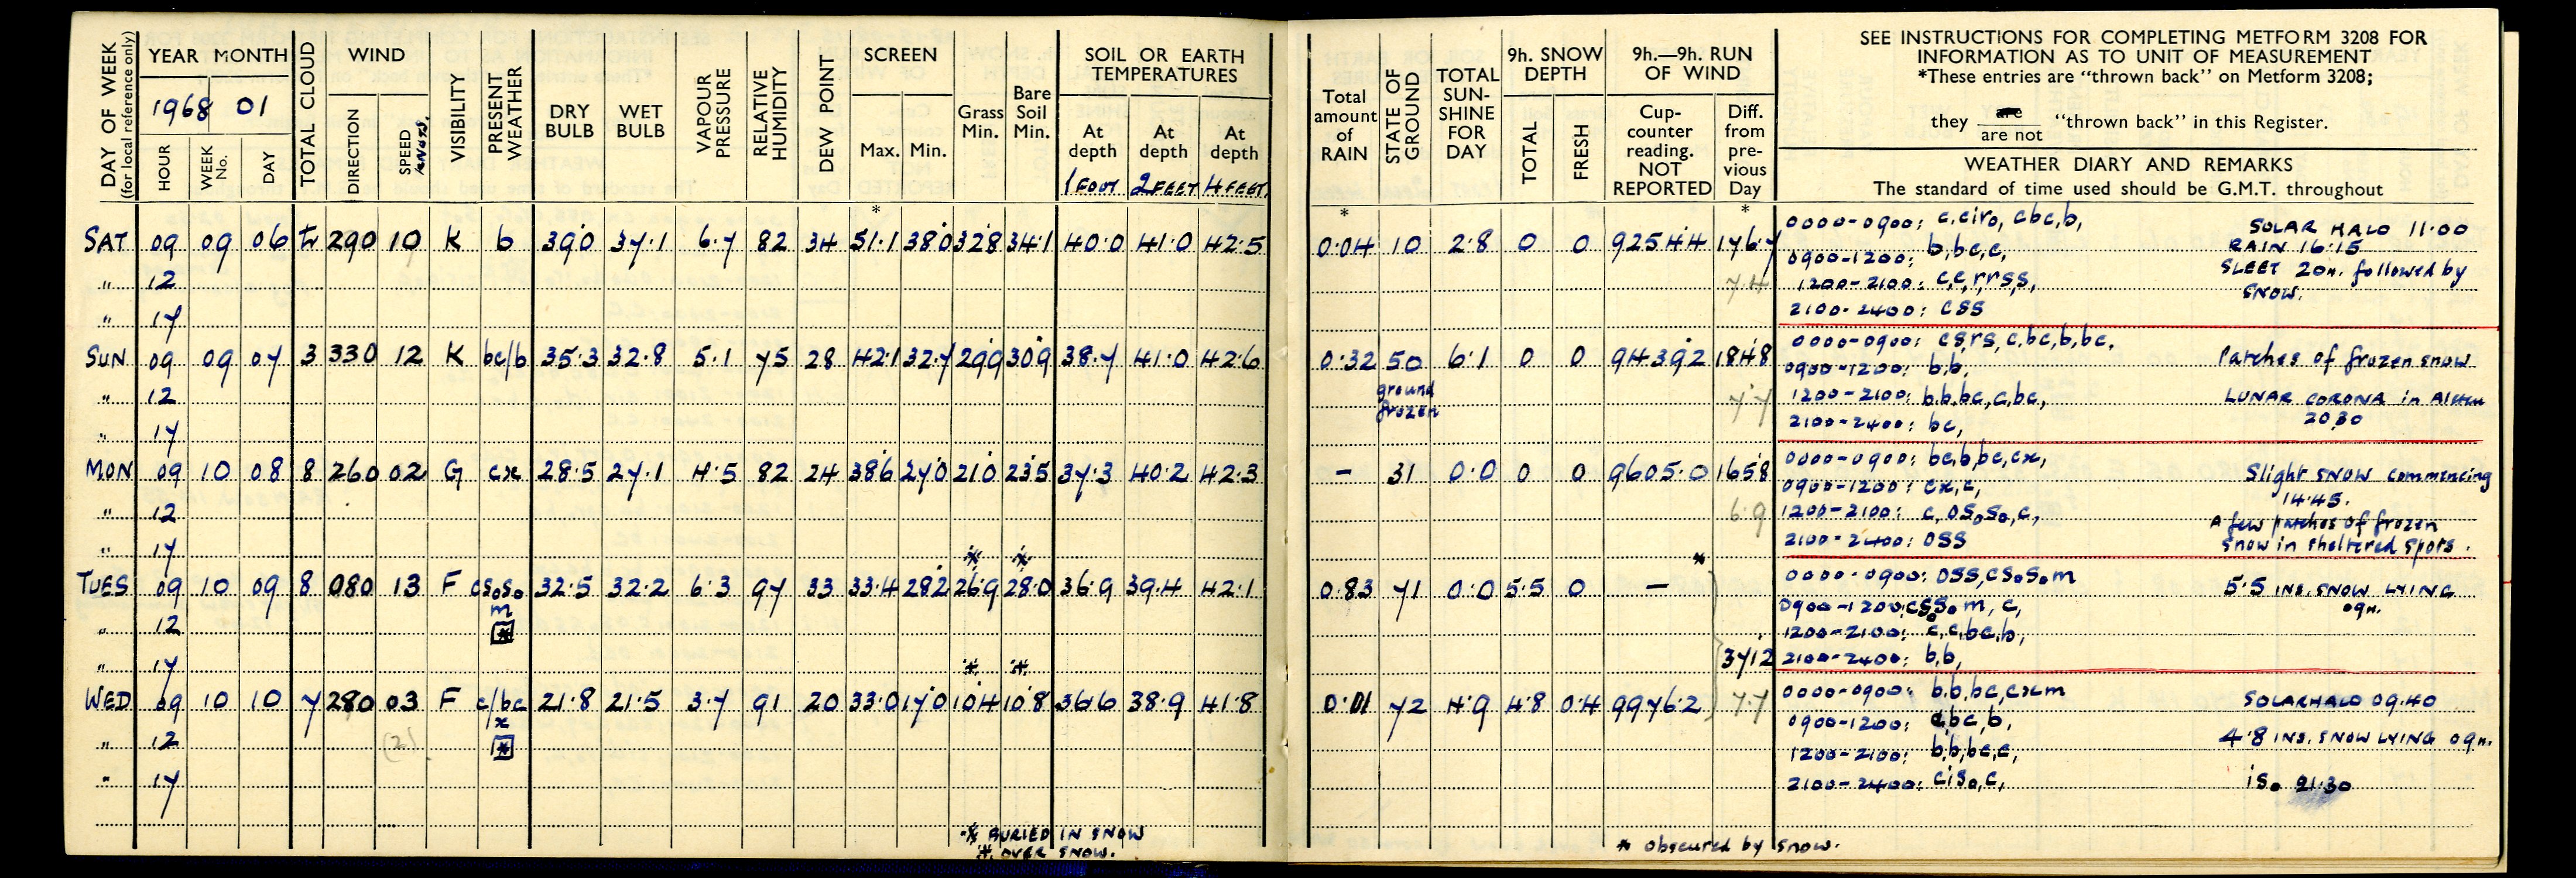 DAY OF WEEK
(for local reference only)
YEAR MONTH
1968 01
HOUR
WEEK No.
DAY
TOTAL CLOUD
WIND
DIRECTION
SPEED
KNOTS.
VISIBILITY
PRESENT WEATHER
DRY BULB
WET BULB
VAPOUR PRESSURE
RELATIVE HUMIDITY
DEW POINT
SCREEN
Max. Min.
Grass Min.
Bare Soil Min.
SOIL OR EARTH TEMPERATURES
At depth 1 FOOT
At depth 2 FEET
At depth 4 FEET
Total amount of RAIN
STATE OF GROUND
TOTAL SUN-SHINE FOR DAY
9h. SNOW DEPTH
TOTAL
FRESH
9h.—9h. RUN OF WIND
Cup-counter reading. NOT REPORTED
Diff. from pre-vious Day
SEE INSTRUCTIONS FOR COMPLETING METFORM 3208 FOR
INFORMATION AS TO UNIT OF MEASUREMENT
*These entries are "thrown back" on Metform 3208;
are
they "thrown back" in this Register.
are not
WEATHER DIARY AND REMARKS
The standard of time used should be G.M.T. throughout
* * *
SAT 09 09 06 290 10 K b 39.0 37.1 6.7 82 34 51.1 38.0 32.8 34.1 40.0 41.0 42.5 0.04 10 2.8 0 0 9254.4 176.7
0000-0900: c,ciro, cbc,b, SOLAR HALO 11.00
RAIN 16.15
0900-1200: b,bc,c,
" 12 7.4
1200-2100: c,c,rrss, SLEET 20H. followed by
SNOW.
" 17
2100-2400: css
SUN 09 09 07 3 330 12 K bc/b 35.3 32.8 5.1 75 28 42.1 32.7 29.9 30.9 38.7 41.0 42.6 0.32 50 6.1 0 0 9439.2 184.8
ground frozen
0000-0900: cs,rs,c,bc,b,bc, Patches of frozen snow
0900-1200: b,b,
" 12 7.7
1200-2100: b,b,bc,c,bc, LUNAR CORONA in
20.30
" 17
2100-2400: bc,
MON 09 10 08 8 260 02 G cx 28.5 27.1 4.5 82 24 38.6 27.0 21.0 23.5 37.3 40.2 42.3 - 31 0.0 0 0 9605.0 165.8
0000-0900: bc,b,bc,cx, Slight SNOW commencing
14.45.
0900-1200: cx,c,
" 12 6.9
1200-2100: c,ososo,c, A few patches of frozen
snow in sheltered spots.
" 17 * *
2100-2400: oss
*
TUES 09 10 09 8 080 13 F csoso m 32.5 32.2 6.3 97 33 33.4 28.2 26.9 28.0 36.9 39.4 42.1 0.83 71 0.0 5.5 0 —
0000-0900: oss,csosom 5.5 INS. SNOW LYING
09H.
0900-1200: cssom, c,
" 12
1200-2100: c,c,bc,b,
" 17 * * 371.2
2100-2400: b,b,
WED 09 10 10 7 280 03 F c/bc x 21.8 21.5 3.7 91 20 33.0 17.0 10.4 10.8 36.6 38.9 41.8 0.01 72 4.9 4.8 0.4 9976.2 7.7
0000-0900: b,b,bc,cxm SOLAR HALO 09.40
0900-1200: bc,b,
" 12 (2) 4.8 INS. SNOW LYING 09H.
1200-2100: b,b,bc,c,
" 17
2100-2400: ciso,c, iso 21.30
* BURIED IN SNOW
* OVER SNOW.
* obscured by snow.